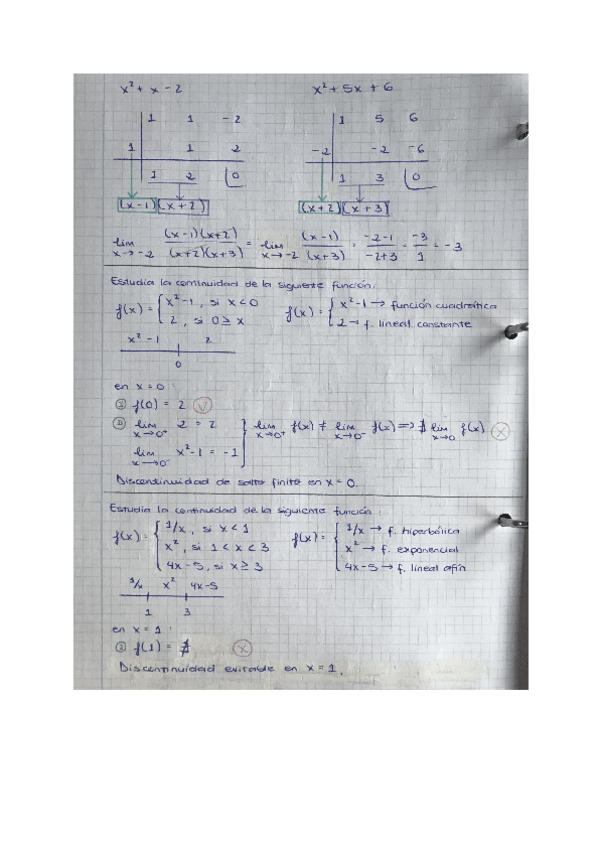 x²+x-2 x²+5x+6
1 1 -2 1 5 6
1 1 2 -2 -2 -6
1 2 0 1 3 0
(x-1)(x+2) (x+2)(x+3)
lim x→-2 (x-1)(x+2)/(x+2)(x+3) = lim x→-2 (x-1)/(x+3) = -2-1/-2+3 = -3/1 = -3
Estudia la continuidad de la siguiente función:
f(x)= { x²-1, si x<0 f(x)= { x²-1 → función cuadrática
2, si 0≥x 2 → f. lineal constante
x²-1 2
0
en x=0
① f(0) = 2 V
② lim x→0⁺ 2 = 2 } lim x→0⁺ f(x) ≠ lim x→0⁻ f(x) ⇒ ∄ lim x→0 f(x) X
lim x→0⁻ x²-1 = -1
Discontinuidad de salto finito en x=0.
Estudia la continuidad de la siguiente función:
f(x)= { 1/x, si x<1 f(x)= { 1/x → f. hiperbólica
x², si 1<x<3 x² → f. exponencial
4x-5, si x≥3 4x-5 → f. lineal afín
1/x x² 4x-5
1 3
en x=1:
① f(1) = ∄ X
Discontinuidad evitable en x=1.